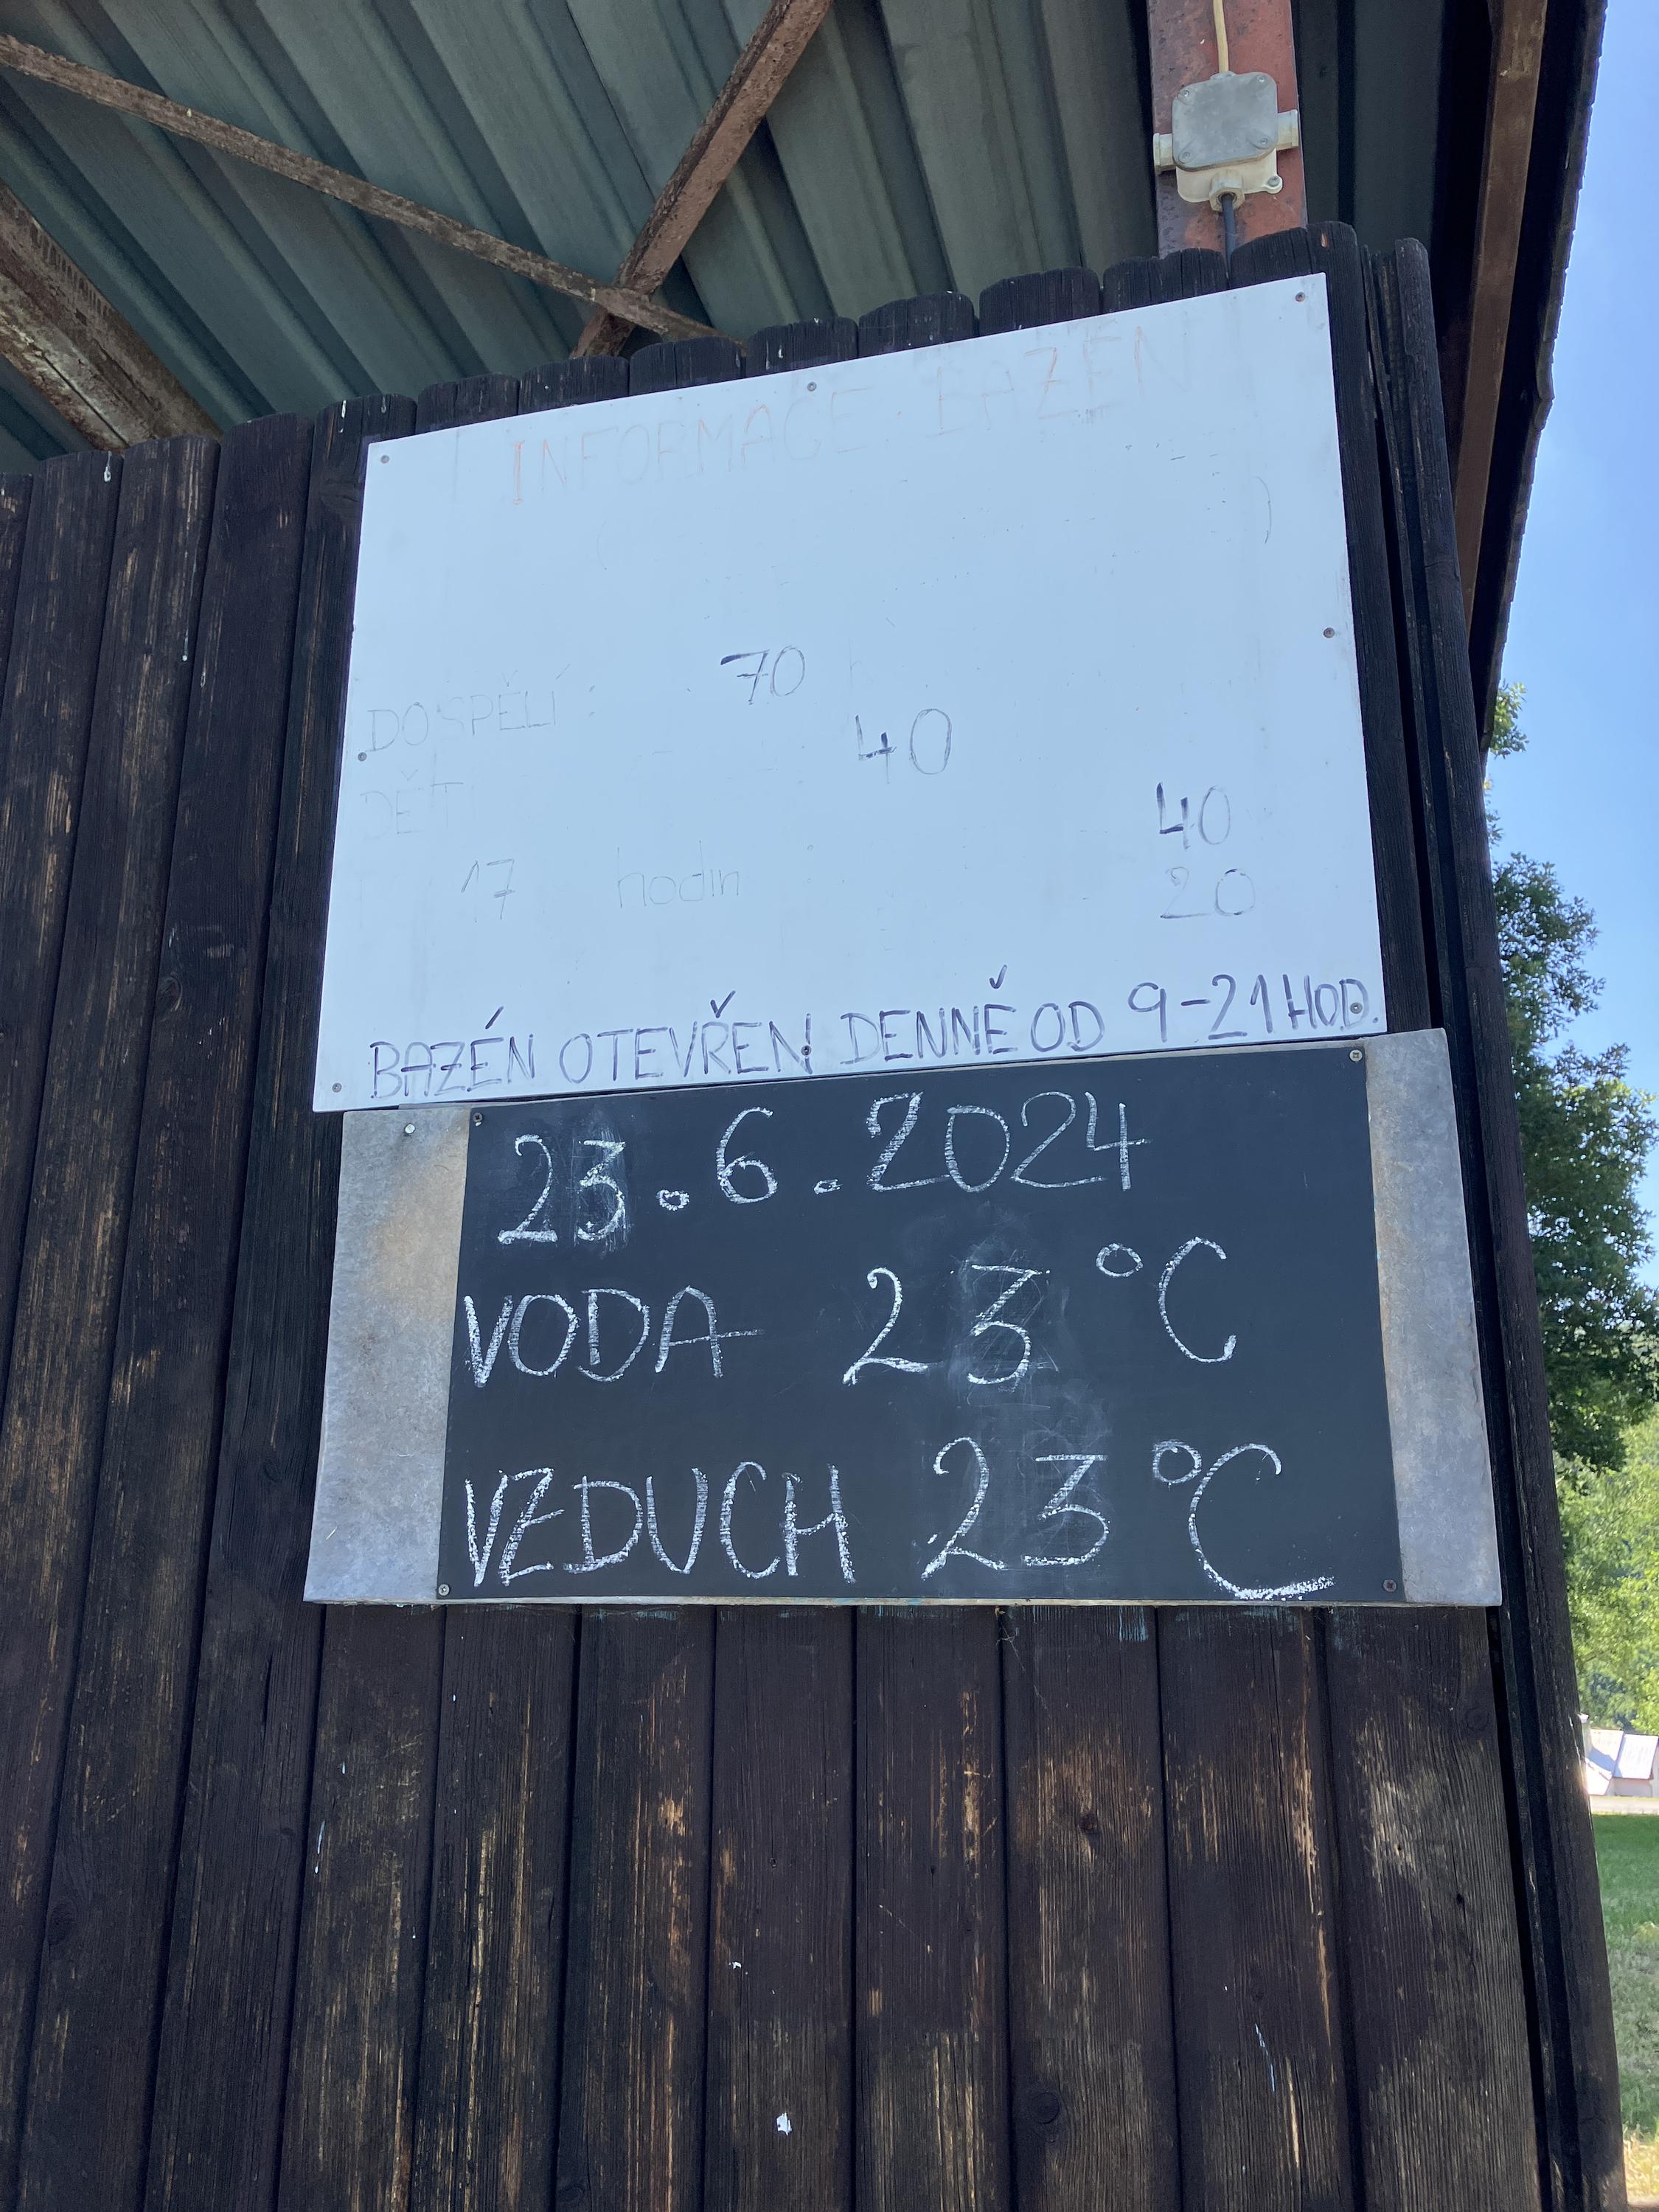 INFORMACE BAZÉN
DOSPĚLÍ: 70
40
DĚTI
40
17 hodin : 20
BAZÉN OTEVŘEN DENNĚ OD 9-21 HOD.
23.6.2024
VODA 23 °C
VZDUCH 23 °C